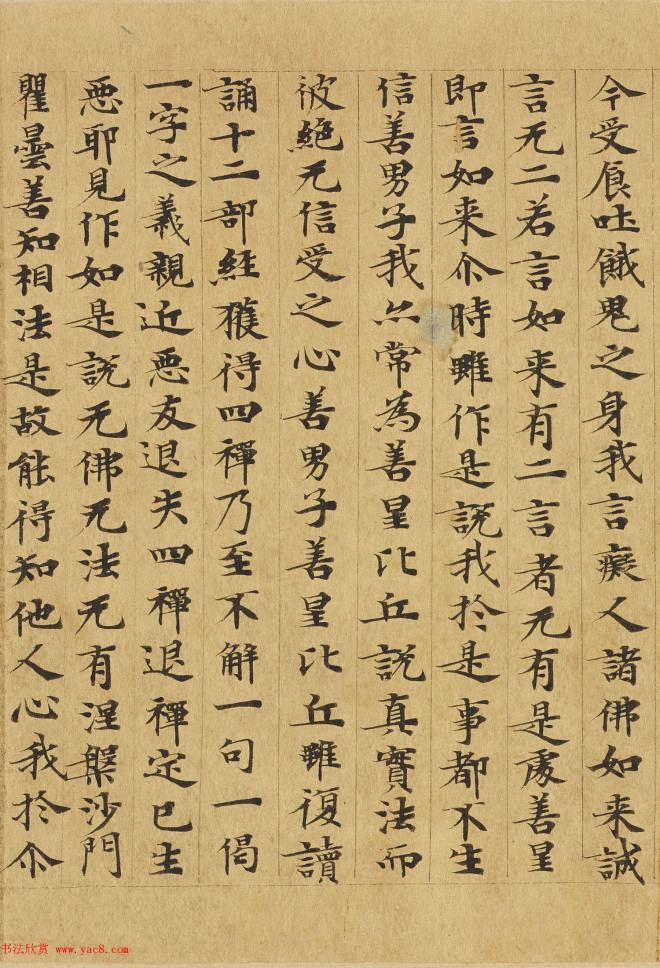 今受食吐餓鬼之身我言癡人諸佛如来誠
言无二若言如来有二言者无有是處善星
即言如来尒時雖作是説我扵是事都不生
信善男子我亦常為善星比丘説真實法而
彼絶无信受之心善男子善星比丘雖復讀
誦十二部經獲得四禪乃至不解一句一偈
一字之義親近惡友退失四禪退禪定已生
惡耶見作如是説无佛无法无有涅槃沙門
瞿曇善知相法是故能得知他人心我扵尒
书法欣赏 www.yac8.com